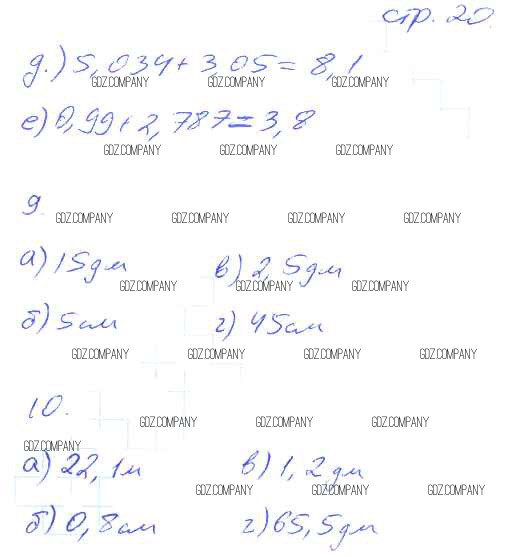 стр. 20.
д.) 5,034 + 3,05 = 8,1
GDZ.COMPANY GDZ.COMPANY GDZ.COMPANY
е) 0,99 + 2,787 = 3,8
GDZ.COMPANY GDZ.COMPANY GDZ.COMPANY
9.
GDZ.COMPANY GDZ.COMPANY GDZ.COMPANY GDZ.COMPANY
а) 15дм в) 2,5дм
GDZ.COMPANY GDZ.COMPANY GDZ.COMPANY
б) 5см г) 45см
GDZ.COMPANY GDZ.COMPANY GDZ.COMPANY GDZ.COMPANY
10.
GDZ.COMPANY GDZ.COMPANY GDZ.COMPANY
GDZ.COMPANY
а) 22,1м в) 1,2дм
GDZ.COMPANY GDZ.COMPANY GDZ.COMPANY
б) 0,8см г) 65,5дм